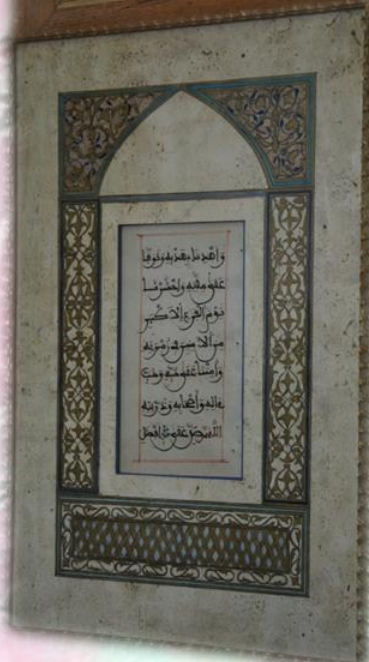 واهدنا بهديه وتوفنا
على ملته واحشرنا
يوم الفزع الاكبر
من الامنين في زمرته
وامتنا على حبه وحب
ءاله واصحابه وذريته
اللهم صل على محمد افضل